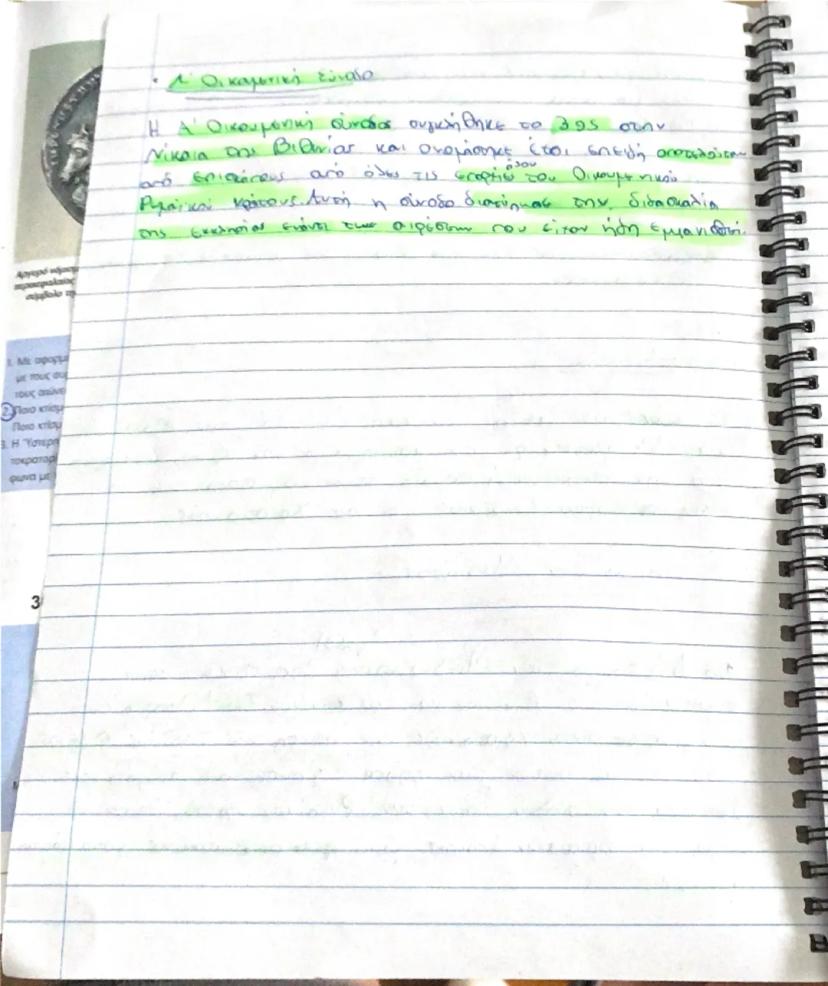 • Α' Οικουμενική Σύνοδο
Η Α' Οικουμενική σύνοδος συγκλήθηκε το 395 στην
Νίκαια της Βιθυνίας και ονομάστηκε έτσι επειδή αποτελείται
από επισκόπους από όλες τις επαρχίες όλου του Οικουμενικού
Ρωμαϊκού κράτους. Αυτή η σύνοδο διατύπωσε την διδασκαλία
της εκκλησίας έναντι των αιρέσεων που είχαν ήδη εμφανισθεί.
Αργυρό νόμισμα
σύμβολο τη
1. Με αφορμ
με τους συ
τους
2. Ποιο κτίσμ
Ποιο κτίσμ
3. Η Ύστερη
τοκρατορ
φωνα με
3